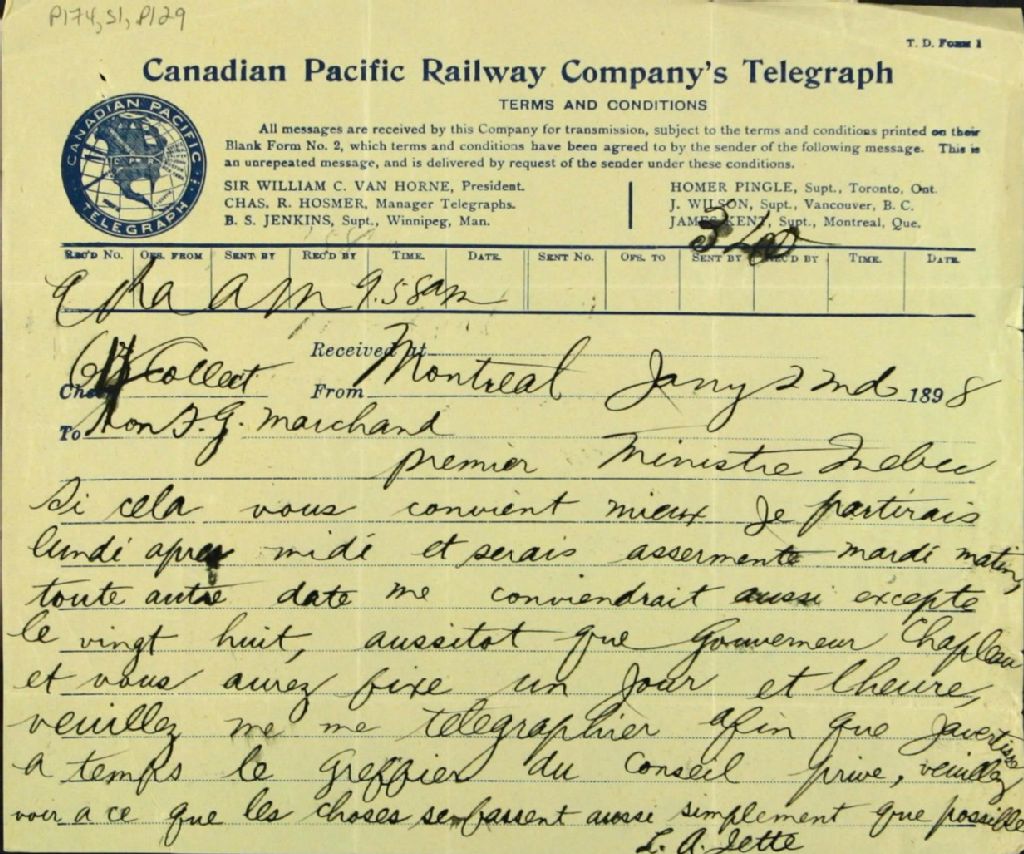 P174, S1, P129
T. D. Form 1
Canadian Pacific Railway Company's Telegraph
TERMS AND CONDITIONS
CANADIAN PACIFIC TELEGRAPH
All messages are received by this Company for transmission, subject to the terms and conditions printed on their
Blank Form No. 2, which terms and conditions have been agreed to by the sender of the following message. This is
an unrepeated message, and is delivered by request of the sender under these conditions.
SIR WILLIAM C. VAN HORNE, President.
CHAS. R. HOSMER, Manager Telegraphs.
B. S. JENKINS, Supt., Winnipeg, Man.
HOMER PINGLE, Supt., Toronto, Ont.
J. WILSON, Supt., Vancouver, B. C.
JAMES KENT, Supt., Montreal, Que.
REC'D NO. OFS. FROM SENT BY REC'D BY TIME. DATE. SENT NO. OFS. TO SENT BY REC'D BY TIME. DATE.
9.58am
Received at
Check Collect From Montreal Jany 22nd 1898
To Hon F. G. Marchand
premier Ministre Quebec
Si cela vous convient mieux Je partirais
lundi apres midi et serais assermente mardi matin,
toute autre date me conviendrait aussi excepte
le vingt huit, aussitot que Gouverneur Chapleau
et vous aurez fixe un Jour et lheure,
veuillez me me telegraphier afin que Javertisse
a temps le Greffier du Conseil prive, veuillez
voir a ce que les choses se fassent aussi simplement que possible
L. A. Jette